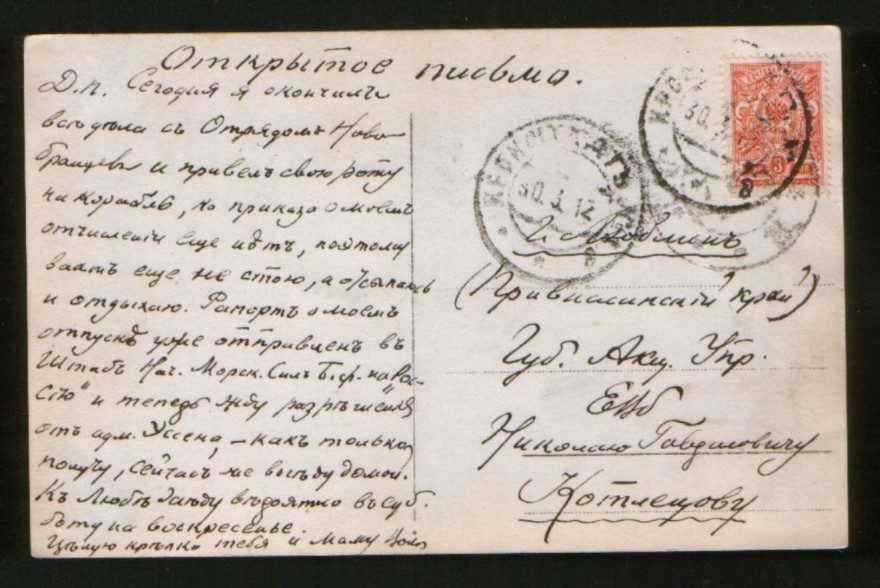 Открытое письмо.
Д.п. Сегодня я окончилъ
всѣ дѣла съ Отрядомъ Ново-
бранцевъ и привелъ свою роту
на корабль, но приказа о моемъ
отчисленіи еще нѣтъ, поэтому
вахтъ еще не стою, а отсыпаюсь
и отдыхаю. Рапортъ о моемъ
отпускѣ уже отправленъ въ
Штабъ Нач. Морск. Силъ Б.ф. на „Рос-
сію" и теперь жду разрѣшенія
отъ адм. Эссена, – какъ только
получу, сейчасъ же выѣду домой.
Къ Любѣ заѣду вѣроятно въ суб-
боту на воскресенье.
Цѣлую крѣпко тебя и маму
КРОНШТАДТЪ
30.3.12
г. Люблинъ
(Привислинскій край)
Губ. Акц. Упр.
ЕВБ
Николаю Гавриловичу
Котлецову
3